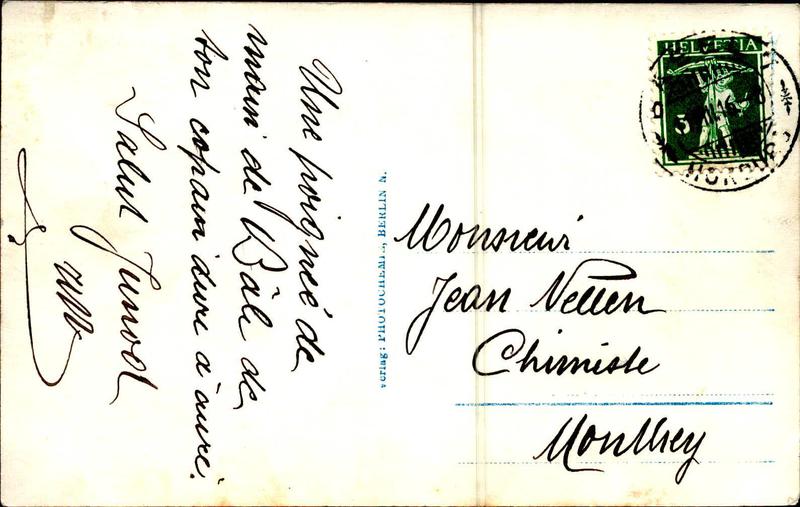 Une poignée de
main de Bâle de
ton copain dure à cuire.
Salut Junod
Monsieur
Jean Nellen
Chimiste
Monthey
HELVETIA
5
Verlag: PHOTOCHEMIE, BERLIN N.